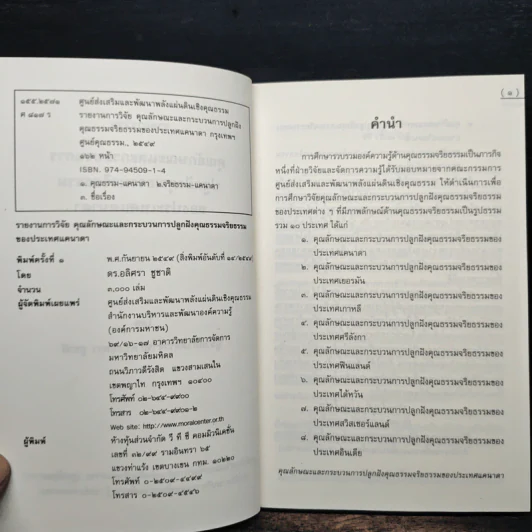 ๑๕๕.๒๕๗๑
ศูนย์ส่งเสริมและพัฒนาพลังแผ่นดินเชิงคุณธรรม
ศ ๘๑๗ ว
รายงานการวิจัย คุณลักษณะและกระบวนการปลูกฝัง
คุณธรรมจริยธรรมของประเทศแคนาดา กรุงเทพฯ
ศูนย์คุณธรรม., ๒๕๔๙
๑๖๒ หน้า
ISBN. 974-94509-1-4
๑. คุณธรรม-แคนาดา ๒.จริยธรรม-แคนาดา
๓. ชื่อเรื่อง
รายงานการวิจัย คุณลักษณะและกระบวนการปลูกฝังคุณธรรมจริยธรรม
ของประเทศแคนาดา
พิมพ์ครั้งที่ ๑ พ.ศ.กันยายน ๒๕๔๙ (สิ่งพิมพ์อันดับที่ ๑๔/๒๕๔๙)
โดย ดร.อลิศรา ชูชาติ
จำนวน ๓,๐๐๐ เล่ม
ผู้จัดพิมพ์เผยแพร่ ศูนย์ส่งเสริมและพัฒนาพลังแผ่นดินเชิงคุณธรรม
สำนักงานบริหารและพัฒนาองค์ความรู้
(องค์การมหาชน)
๖๙/๑๖-๑๗ อาคารวิทยาลัยการจัดการ
มหาวิทยาลัยมหิดล
ถนนวิภาวดีรังสิต แขวงสามเสนใน
เขตพญาไท กรุงเทพฯ ๑๐๔๐๐
โทรศัพท์ ๐๒-๖๔๔-๙๙๐๐
โทรสาร ๐๒-๖๔๔-๙๙๐๑-๒
Web site: http://www.moralcenter.or.th
ผู้พิมพ์ ห้างหุ้นส่วนจำกัด วี ที ซี คอมมิวนิเคชั่น
เลขที่ ๓๒/๙๙ รามอินทรา ๖๕
แขวงท่าแร้ง เขตบางเขน กทม. ๑๐๒๒๐
โทรศัพท์ ๐-๒๕๐๙-๔๔๙๙
โทรสาร ๐-๒๕๐๙-๔๕๔๖
(๑)
คำนำ
การศึกษารวบรวมองค์ความรู้ด้านคุณธรรมจริยธรรมเป็นภารกิจ
หนึ่งที่ฝ่ายวิจัยและจัดการความรู้ได้รับมอบหมายจากคณะกรรมการ
ศูนย์ส่งเสริมและพัฒนาพลังแผ่นดินเชิงคุณธรรม ให้ดำเนินการเพื่อ
การศึกษาวิจัยคุณลักษณะและกระบวนการปลูกฝังคุณธรรมจริยธรรมของ
ประเทศต่าง ๆ ที่มีภาพลักษณ์ด้านคุณธรรมจริยธรรมเป็นรูปธรรม
รวม ๑๐ ประเทศ ได้แก่
๑. คุณลักษณะและกระบวนการปลูกฝังคุณธรรมจริยธรรมของ
ประเทศแคนาดา
๒. คุณลักษณะและกระบวนการปลูกฝังคุณธรรมจริยธรรมของ
ประเทศเยอรมัน
๓. คุณลักษณะและกระบวนการปลูกฝังคุณธรรมจริยธรรมของ
ประเทศเกาหลี
๔. คุณลักษณะและกระบวนการปลูกฝังคุณธรรมจริยธรรมของ
ประเทศศรีลังกา
๕. คุณลักษณะและกระบวนการปลูกฝังคุณธรรมจริยธรรมของ
ประเทศฟินแลนด์
๖. คุณลักษณะและกระบวนการปลูกฝังคุณธรรมจริยธรรมของ
ประเทศไต้หวัน
๗. คุณลักษณะและกระบวนการปลูกฝังคุณธรรมจริยธรรมของ
ประเทศสวิตเซอร์แลนด์
๘. คุณลักษณะและกระบวนการปลูกฝังคุณธรรมจริยธรรมของ
ประเทศอินเดีย
คุณลักษณะและกระบวนการปลูกฝังคุณธรรมจริยธรรมของประเทศแคนาดา